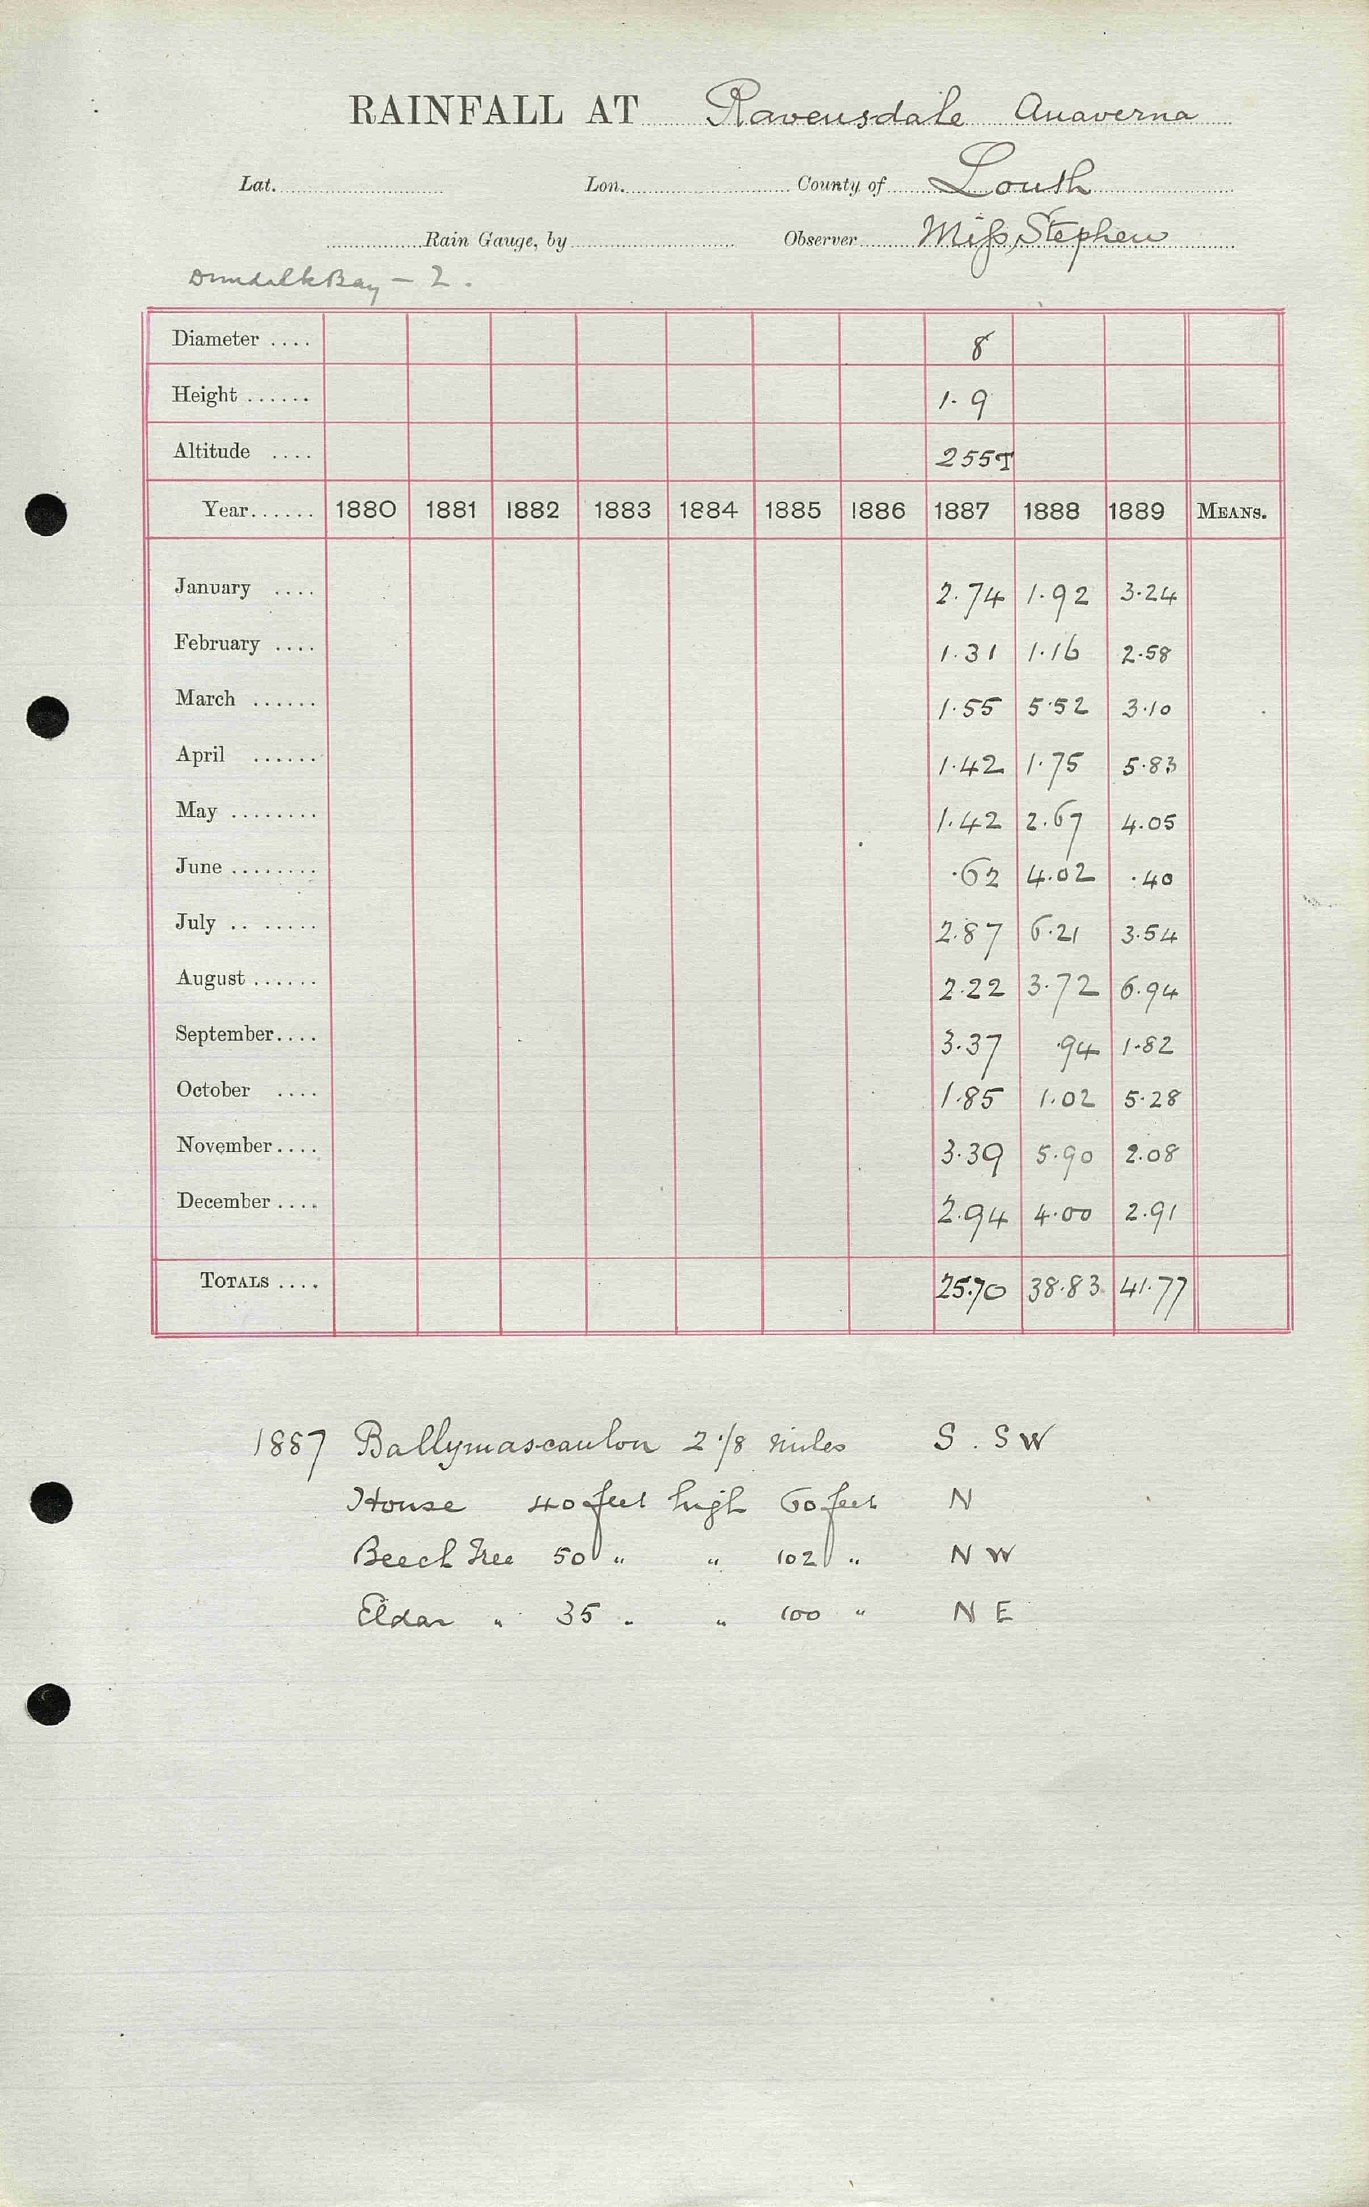 RAINFALL AT Ravensdale Anaverna
Lat. Lon. County of Louth
Rain Gauge, by Observer Miss Stephen
Dundalk Bay – 2.
Diameter .... 8
Height ...... 1.9
Altitude .... 255T
Year...... 1880 1881 1882 1883 1884 1885 1886 1887 1888 1889 MEANS.
January .... 2.74 1.92 3.24
February .... 1.31 1.16 2.58
March ...... 1.55 5.52 3.10
April ...... 1.42 1.75 5.83
May ........ 1.42 2.67 4.05
June ........ .62 4.02 .40
July .. ..... 2.87 6.21 3.54
August ...... 2.22 3.72 6.94
September.... 3.37 .94 1.82
October .... 1.85 1.02 5.28
November.... 3.39 5.90 2.08
December .... 2.94 4.00 2.91
TOTALS .... 25.70 38.83 41.77
1887 Ballymascanlon 2 1/8 miles S. SW
House 40 feet high 60 feet N
Beech Tree 50 " " 102 " NW
Eldar " 35 " " 100 " NE